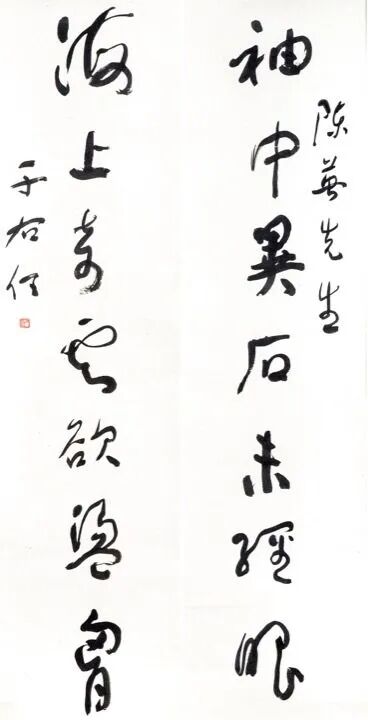 陳英先生
袖中異石未經眼
海上奇雲欲盪胷
于右任